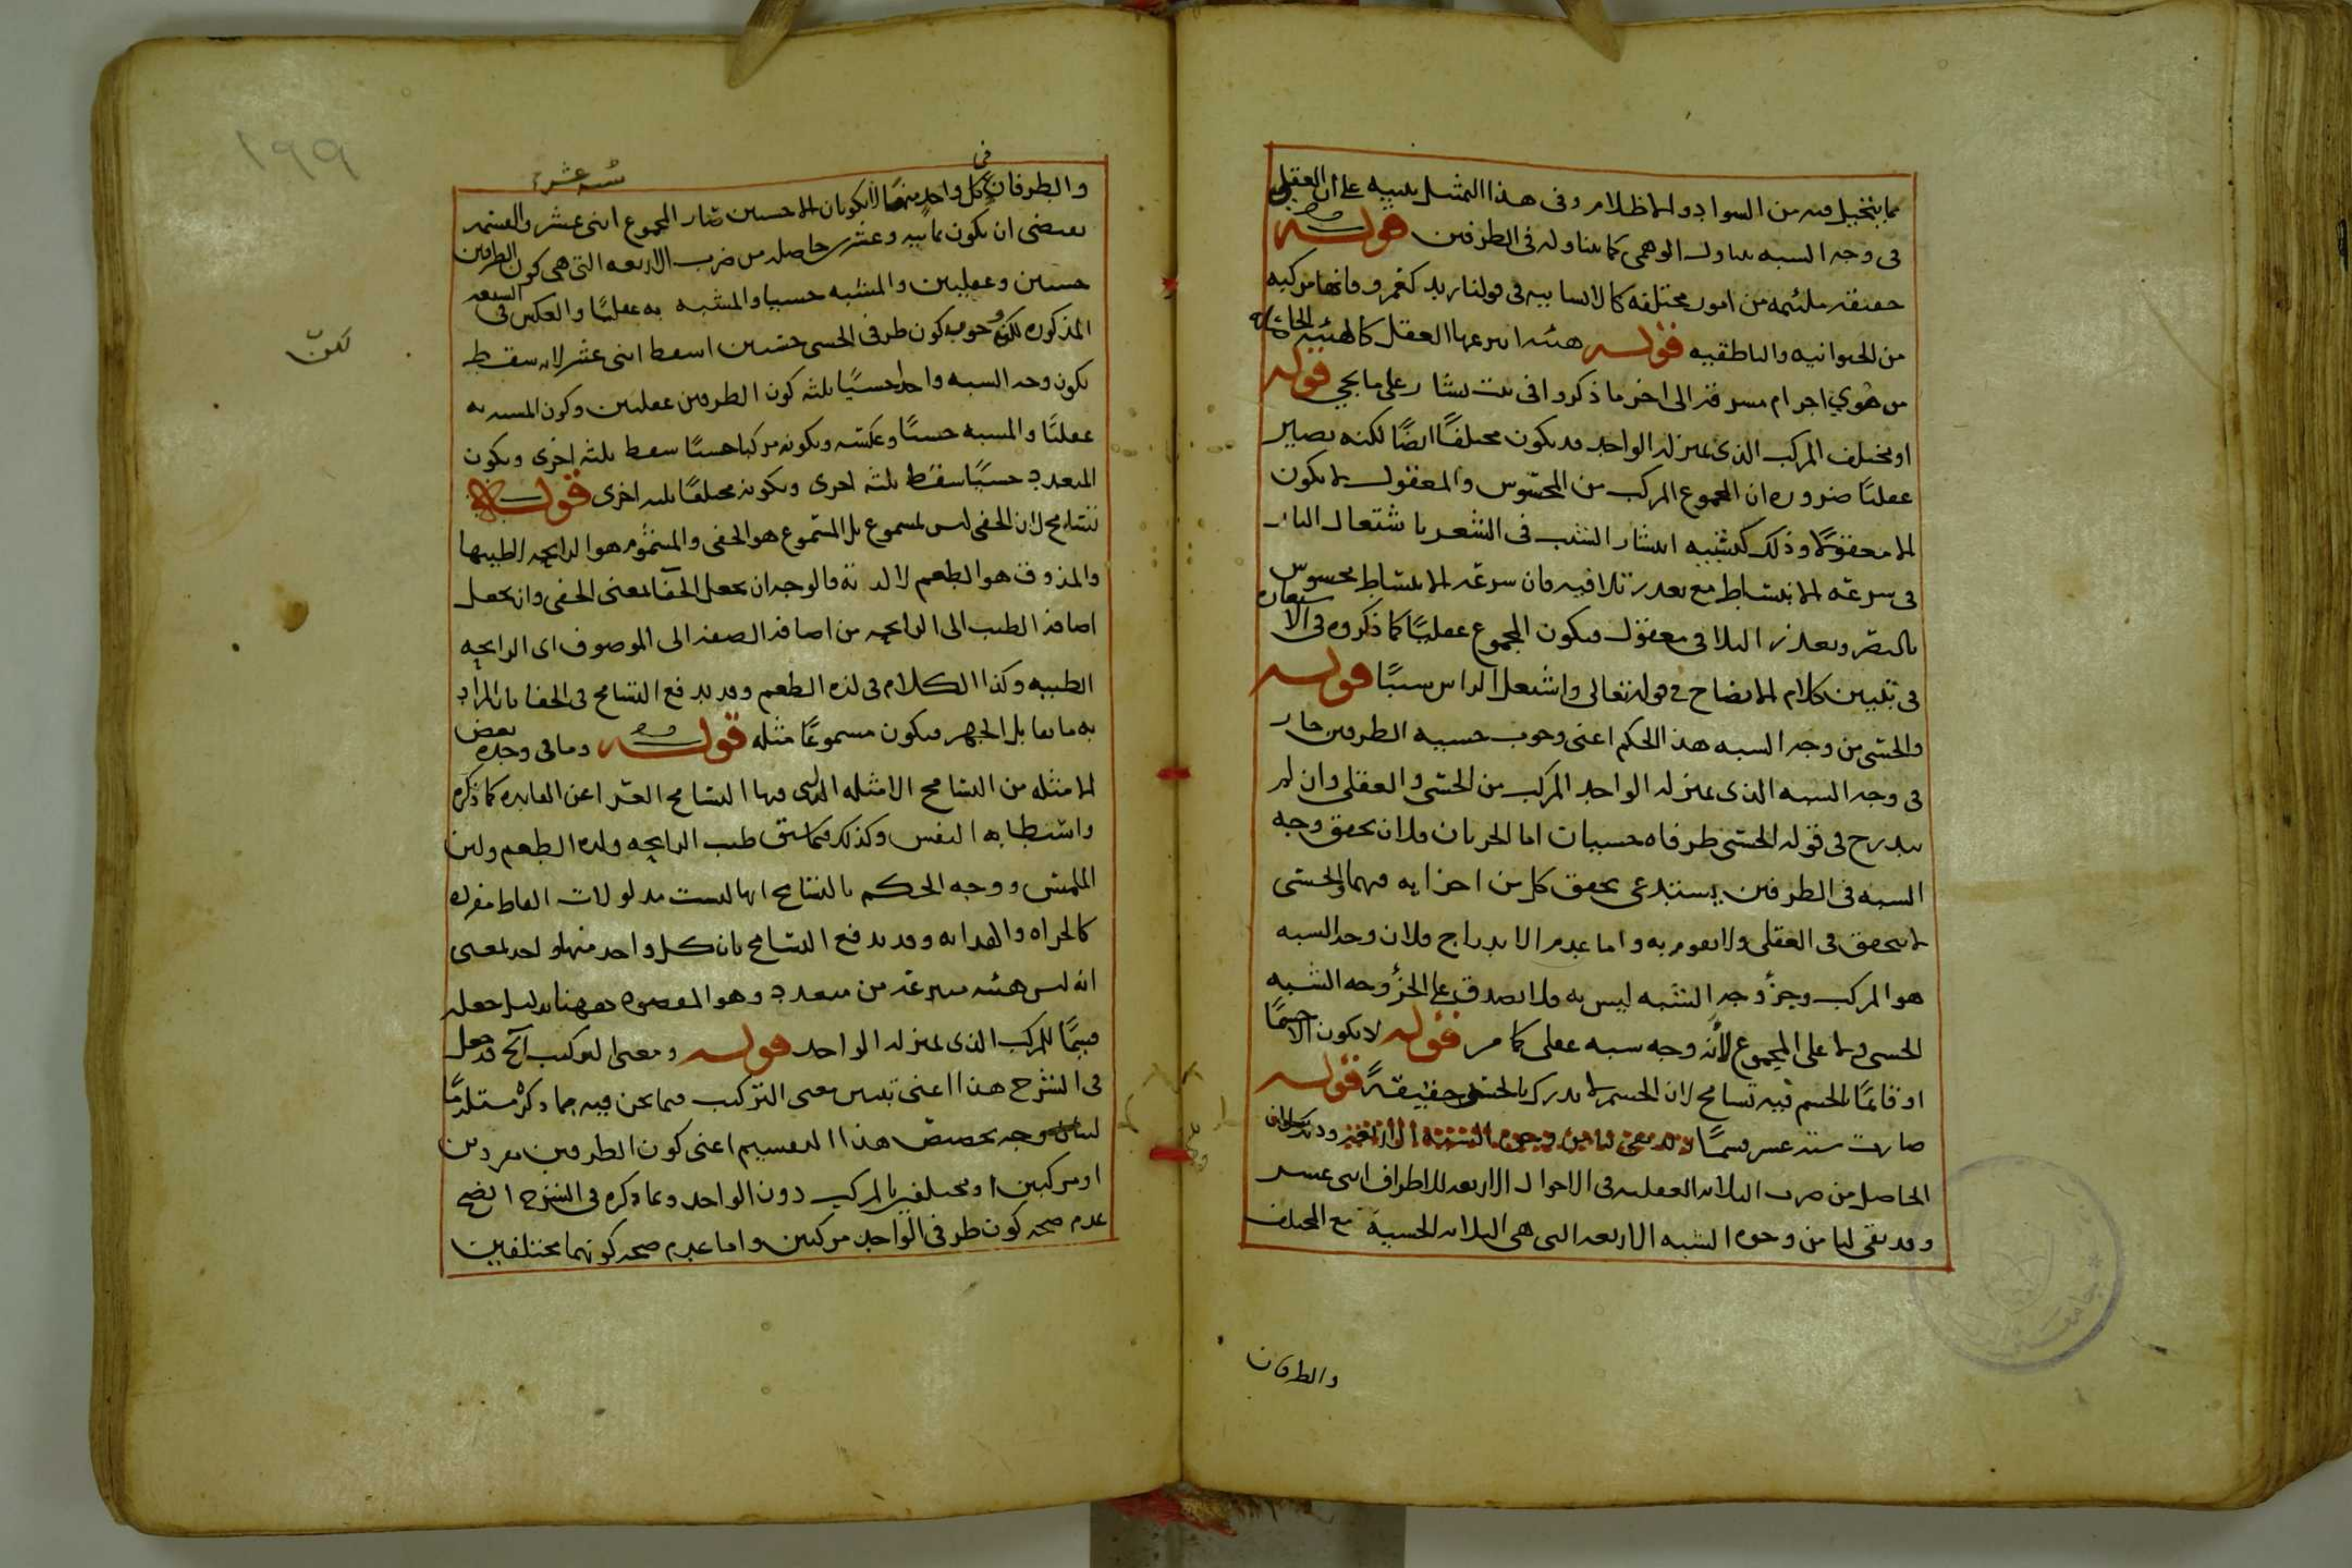 مما يتخيل فيه من السواد والاظلام وفى هذا التمثيل تنبيه على ان العقلى
فى وجه الشبه يتناول الوهمى كما يتناوله فى الطرفين قوله
حقيقة ملتئمة من امور مختلفة كالانسانية فى قولنا زيد كعمرو فانها مركبة
من الحيوانية والناطقية قوله هيئة انتزعها العقل كالهيئة الحاصلة
من هوي اجرام مشرقة الى اخر ما ذكروا فى بيت بشار على ما يجي قوله
او مختلف المركب الذى بمنزلة الواحد قد يكون مختلفًا ايضًا لكنه يصير
عقليًا ضرورة ان المجموع المركب من المحسوس والمعقول لا يكون
الا معقولًا وذلك كتشبيه انتشار الشيب فى الشعر باشتعال النار
فى سرعة الانبساط مع تعذر تلافيه فان سرعة الانبساط محسوس
بالبصر وتعذر التلافى معقول فيكون المجموع عقليًا كما ذكروه فى الاستعارة
فى تبيين كلام الايضاح فى قوله تعالى واشتعل الراس شيبًا قوله
والحسى من وجه الشبه هذا الحكم اعنى وجوب حسية الطرفين جار
فى وجه الشبه الذى بمنزلة الواحد المركب من الحسى والعقلى وان لم
يندرج فى قوله الحسى طرفاه حسيان اما الجريان فلان تحقق وجه
الشبه فى الطرفين يستدعى تحقق كل من اجزايه فيهما والحسى
لا يتحقق فى العقلى ولا يقوم به واما عدم الاندراج فلان وجه الشبه
هو المركب وجزؤ وجه الشبه ليس به فلا يصدق على الجزؤ وجه الشبه
الحسى ولا على المجموع لأنه وجه شبه عقلى كما مر قوله لا يكون الا جسمًا
او قائمًا بالجسم فيه تسامح لان الجسم لا يدرك بالحس حقيقةً قوله
صارت ستة عشر قسمًا
الحاصل من ضرب الثلاثة العقلية فى الاحوال الاربعة للاطراف اثنى عشر
وقد بقى لنا من وجوه الشبه الاربعة التى هى الثلاثة الحسية مع المختلف
والطرفان
١٩٩
ستة عشر
فى
والطرفان كل واحد منها لا يكونان الا حسيين فصار المجموع اثنى عشر والقسمة
تقتضى ان يكون ثمانية وعشرين حاصلة من ضرب الاربعة التى هى كون الطرفين
حسيين وعقليين والمشبه حسيا والمشبه به عقليًا والعكس فى السبعة
المذكورة لكن وجوب كون طرفى الحسى حسيين اسقط اثنى عشر لانه سقط
لكنّ
بكون وجه الشبه واحدًا حسيًا ثلثة كون الطرفين عقليين وكون المشبه به
عقليًا والمشبه حسيًا وعكسه وبكونه مركبا حسيًا سقط ثلثة اخرى وبكون
المتعدد حسيًا سقط ثلثة اخرى وبكونه مختلفًا ثلثة اخرى قوله
تسامح لان الخفى ليس لمسموع بل المسموع هو الخفى والمشموم هو الرايحة لا طيبها
والمذوق هو الطعم لا لذته فالوجه ان يجعل الخفا بمعنى الخفى وان يجعل
اضافة الطيب الى الرايحة من اضافة الصفة الى الموصوف اى الرايحة
الطيبة وكذا الكلام فى لذة الطعم وقد يدفع التسامح فى الخفا بان المراد
به ما يقابل الجهر فيكون مسموعًا مثله قوله وما فى وحدة بعض
الامثلة من التسامح الامثلة التى فيها التسامح العراء عن الفايدة كما ذكره
واستطابة النفس وكذلك فيما سبق طيب الرايحة ولذة الطعم ولين
الملمس ووجه الحكم بالتسامح انها ليست مدلولات الفاظ مفردة
كالجراة والهداية وقد يدفع التسامح بان كل واحد منها واحد بمعنى
انه ليس هيئة منتزعة من متعدد وهو المقصود ههنا بدليل جعله
قسيمًا للمركب الذى بمنزلة الواحد قوله ومعنى التركيب آلخ قد جعل
فى الشرح هذا اعنى تفسير معنى التركيب فيما نحن فيه بما ذكره مستلزمًا
لبيان وجه تخصيص هذا التقسيم اعنى كون الطرفين مفردين
او مركبين او مختلفين بالمركب دون الواحد وبما ذكره فى الشرح اتضح
عدم صحة كون طرفى الواحد مركبين واما عدم صحة كونهما مختلفين